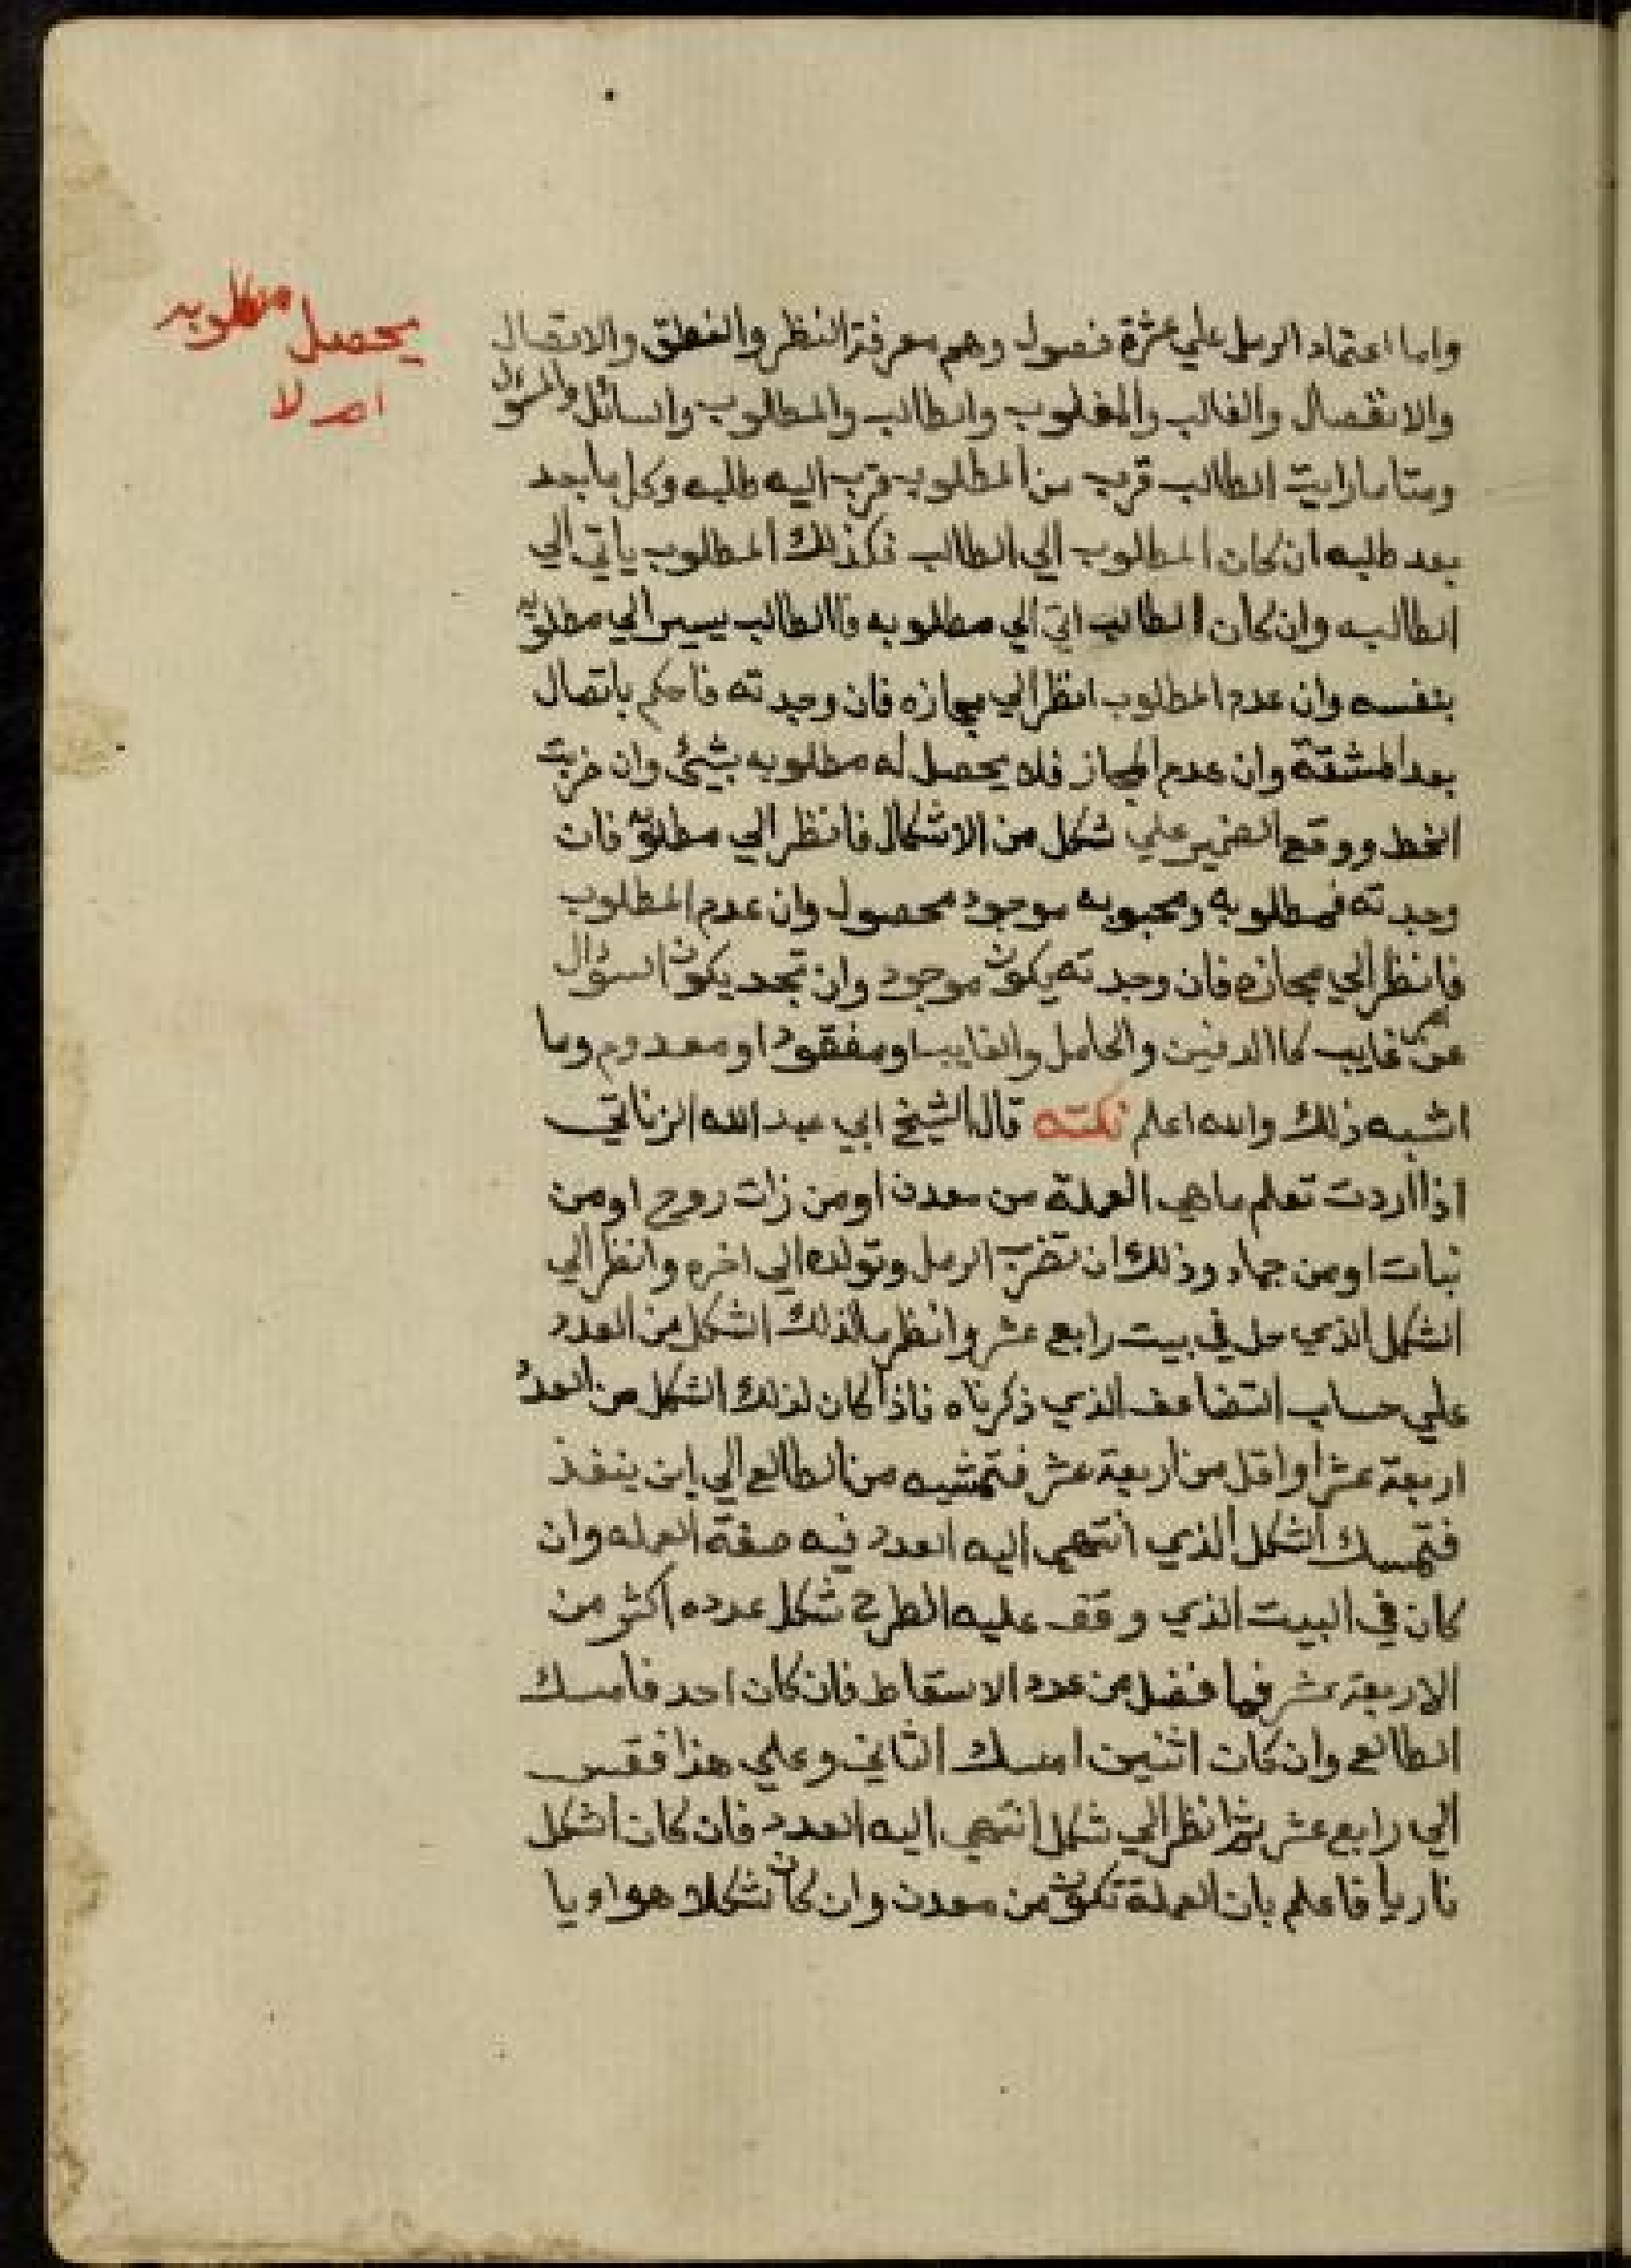 يحصل مطلوبه
ام لا
واما اعتماد الرمل علي عشرة فصول وهم معرفة النظر والنطق والاتصال
والانفصال والغالب والمغلوب والطالب والمطلوب والسائل والمسؤل
ومتاما رايت الطالب قرب من المطلوب قرب اليه طلبه وكل ما بعد
بعد طلبه ان كان المطلوب الي الطالب فكذلك المطلوب ياتي الي
الطالبه وان كان الطالب اتي الي مطلوبه فاالطالب يسير الي مطلوبه
بنفسه وان عدم المطلوب انظر الي مجازه فان وجدته فاحكم باتصال
بعد المشقة وان عدم المجاز فلا يحصل له مطلوبه بشئ وان ضربت
الخط ووقع الضمير علي شكل من الاشكال فانظر الي مطلوبه فان
وجدته فمطلوبه ومحبوبه موجود محصول وان عدم المطلوب
فانظر الي مجازه فان وجدته يكون موجود وان تجد يكون السؤال
عن غايب كاالدفين والحامل والغايب او مفقود او معدوم وما
اشبه ذلك والله اعلم نكته قال الشيخ ابي عبد الله الزناتي
اذا اردت تعلم ماهي العملة من معدن او من زات روح او من
نبات او من جماد وذلك ان تضرب الرمل وتولده الي اخره وانظر الي
الشكل الذي حل في بيت رابع عشر وانظر مالذلك الشكل من العدد
علي حساب التضاعف الذي ذكرناه فاذا كان لذلك الشكل من العدد
اربعة عشر او اقل من اربعة عشر فتمشيه من الطالع الي اين ينفذ
فتمسك الشكل الذي انتهي اليه العدد فيه صفة العمله وان
كان في البيت الذي وقف عليه الطرح شكل عدده اكثر من
الاربعة عشر فما فضل من عدد الاسقاط فان كان احد فامسك
الطالع وان كان اثنين امسك الثاني وعلي هذا فقس
الي رابع عشر ثم انظر الي شكل انتهي اليه العدد فان كان اشكل
ناريا فاعلم بان العملة تكون من معدن وان كان شكلا هواويا